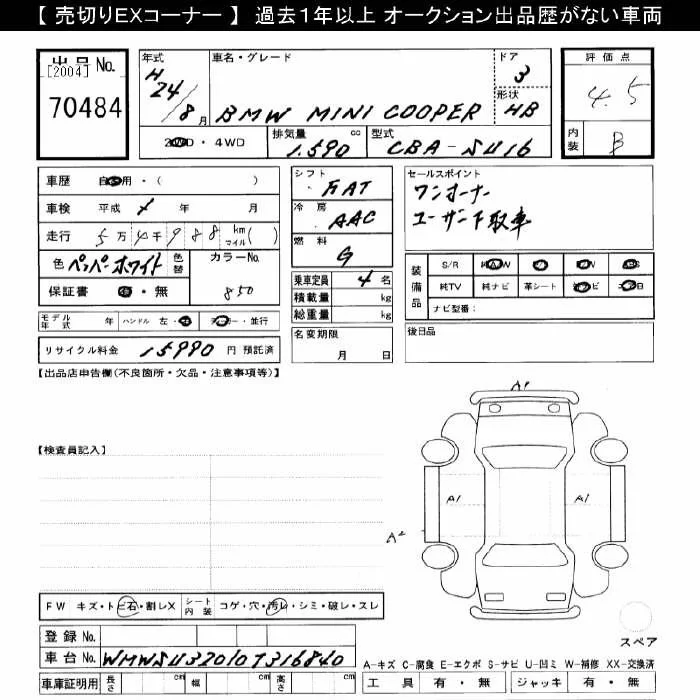 【 売切りEXコーナー 】 過去1年以上 オークション出品歴がない車両
出品 No.
[2004]
70484
年式 H 24/8月
車名・グレード
BMW MINI COOPER
ドア 3
形状 HB
評価点 4.5
内装 B
2WD・4WD
排気量 1.590 cc
型式 CBA-SU16
車歴 自家用・( )
車検 平成 年 月
走行 5万4千988 km マイル( )
色 ペッパーホワイト
色替
カラーNo. 850
保証書 有・無
シフト FAT
冷房 AAC
燃料 G
乗車定員 4名
積載量 kg
総重量 kg
セールスポイント
ワンオーナー
ユーザー下取車
装備品
S/R 純A/W P/S P/W ABS
純TV 純ナビ 革シート
ナビ型番:
モデル年式 年 ハンドル 左・右 ディーラー・並行
名変期限 月 日
後日品
リサイクル料金 15990 円 預託済
【出品店申告欄(不良箇所・欠品・注意事項等)】
【検査員記入】
A1
A1
A1
A2
FW キズ・トビ石・割レX シート内装 コゲ・穴・汚レ・シミ・破レ・スレ
登録 No.
車台 No. WMWSU32010T316840
スペア
A-キズ C-腐食 E-エクボ S-サビ U-凹ミ W-補修 XX-交換済
車庫証明用 長さ cm 幅 cm 高さ cm
工具 有・無 ジャッキ 有・無